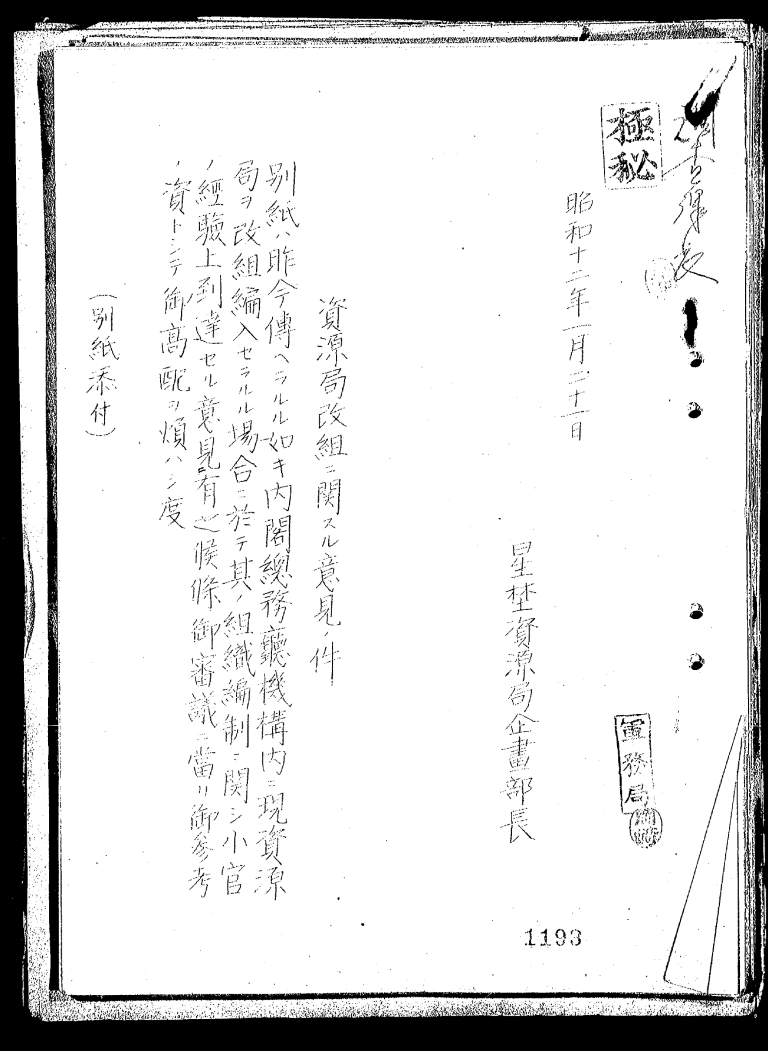 極秘
昭和十二年一月二十一日
軍務局
星埜資源局企畫部長
資源局改組ニ関スル意見ノ件
別紙ハ昨今傳ヘラルル如キ内閣總務廳機構内ニ現資源
局ヲ改組編入セラルル場合ニ於テ其ノ組織編制ニ関シ小官
ノ經驗上到達セル意見有之候條御審議ニ當リ御參考
ノ資トシテ御高配ヲ煩ハシ度
(別紙添付)
1193